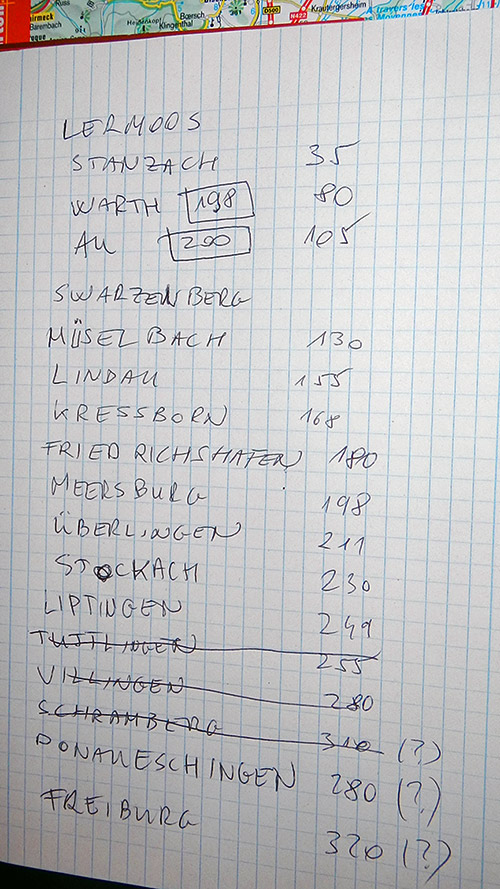 Russ
irmeck
Barembach
Heidenkopf
Bœrsch
Klingenthal
D500
N422
Krautergersheim
A travers les
LERMOOS
STANZACH 35
WARTH 198 80
AU 200 105
SWARZENBERG
MÜSELBACH 130
LINDAU 155
KRESSBORN 168
FRIEDRICHSHAFEN 180
MEERSBURG 198
ÜBERLINGEN 211
STOCKACH 230
LIPTINGEN 249
TUTTLINGEN 255
VILLINGEN 280
SCHRAMBERG 310 (?)
DONAUESCHINGEN 280 (?)
FREIBURG 320 (?)